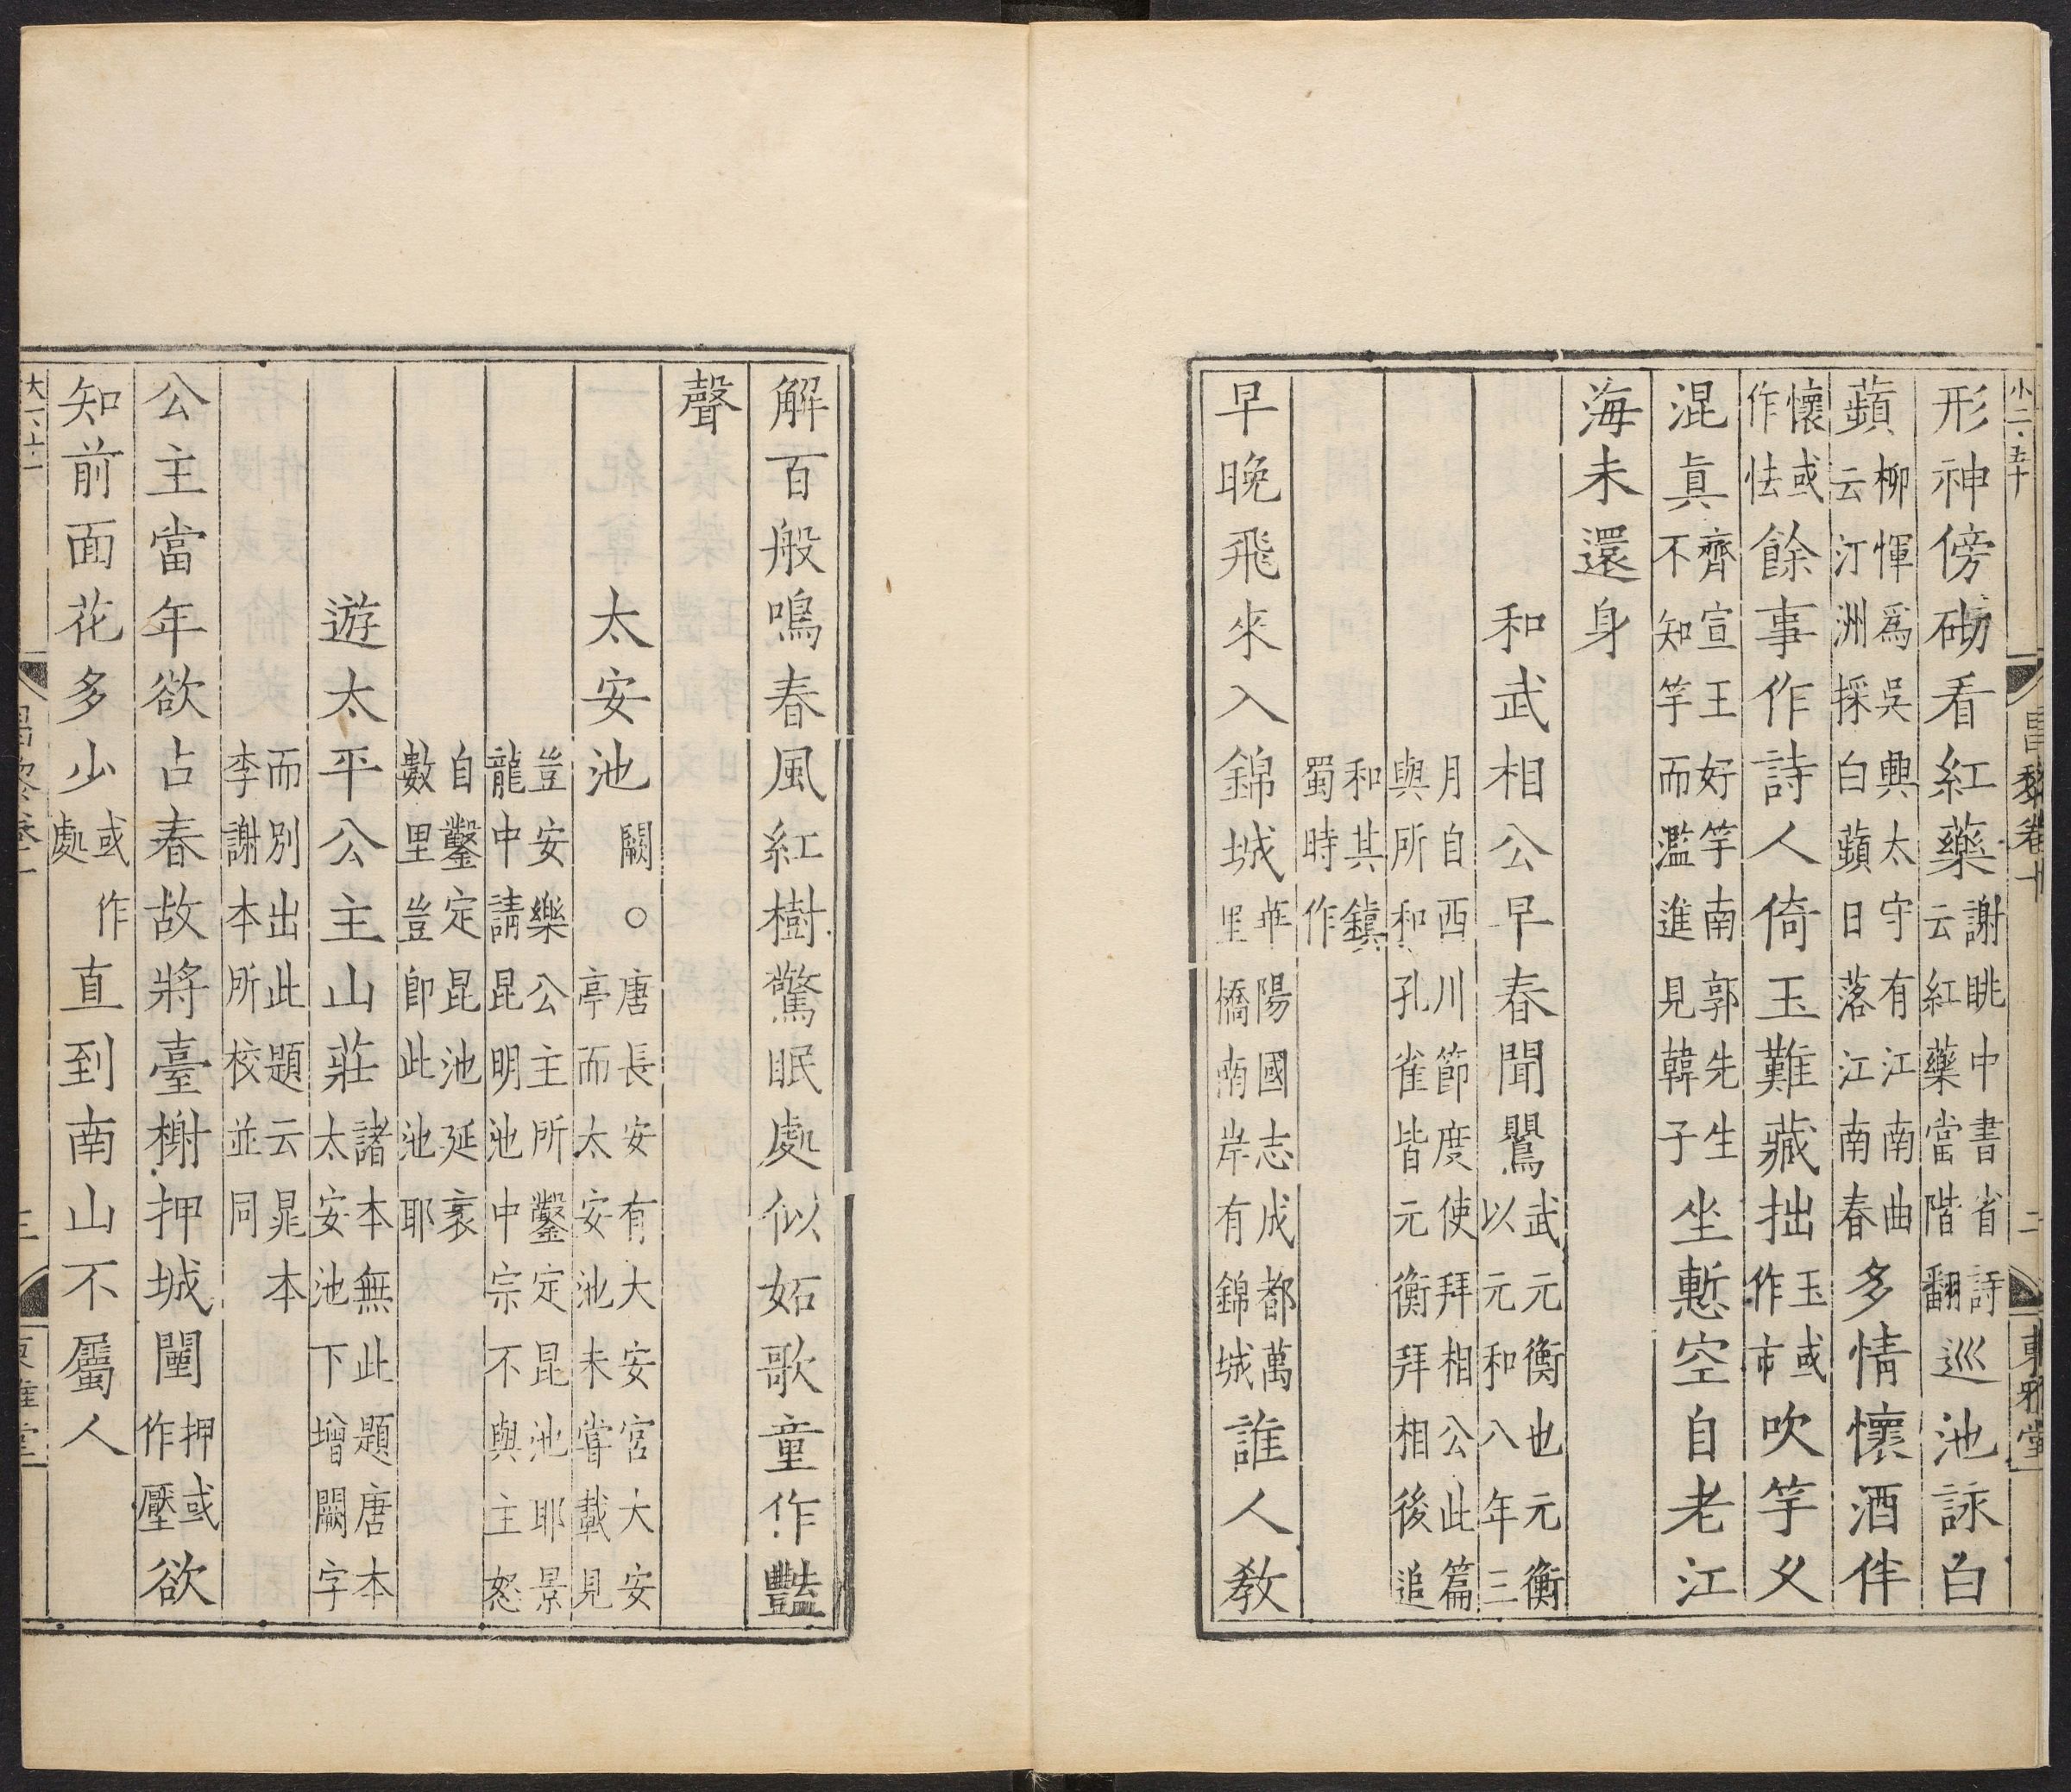 小二·五十 昌黎卷十 二 東雅堂
形神傍砌看紅藥謝眺中書省詩云紅藥當階翻巡池詠白
蘋柳惲爲吳興太守有江南曲云汀洲採白蘋日落江南春多情懷酒伴
懷或作怯餘事作詩人倚玉難藏拙玉或作市吹竽乂
混眞齊宣王好竽南郭先生不知竽而濫進見韓子坐慙空自老江
海未還身
和武相公早春聞鸎武元衡也元衡以元和八年三
月自西川節度使拜相公此篇與所和孔雀皆元衡拜相後追
和其鎮蜀時作
早晚飛來入錦城華陽國志成都萬里橋南岸有錦城誰人教
解百般鳴春風紅樹驚眠處似妬歌童作豔
聲
太安池闕○唐長安有大安宮大安亭而太安池未嘗載見
豈安樂公主所鑿定昆池耶景龍中請昆明池中宗不與主怒
自鑿定昆池延袤數里豈卽此池耶
遊太平公主山莊諸本無此題唐本太安池下增闕字
而別出此題云晁本李謝本所校並同
公主當年欲占春故將臺榭押城闉押或作壓欲
知前面花多少或作處直到南山不屬人